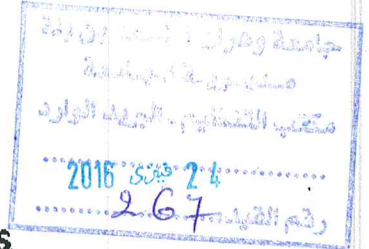 جامعة وهران 1 أحمد بن بلة
مكتب التنظيم - البريد الوارد
2 4 فيفري 2016
رقم القيد 267
s